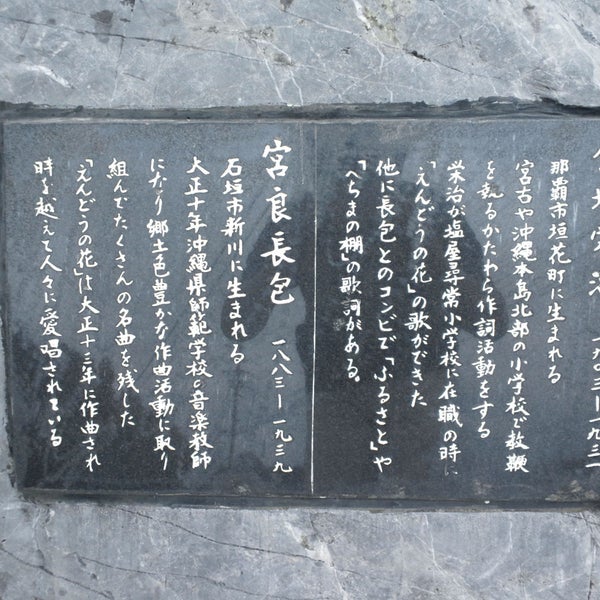 一九〇三ー一九三一
那覇市垣花町に生まれる
宮古や沖縄本島北部の小学校で教鞭
を執るかたわら作詞活動をする
栄治が塩屋尋常小学校に在職の時に
「えんどうの花」の歌ができた
他に長包とのコンビで「ふるさと」や
「へちまの棚」の歌詞がある。
宮良長包 一八八三ー一九三九
石垣市新川に生まれる
大正十年沖縄県師範学校の音楽教師
になり郷土色豊かな作曲活動に取り
組んでたくさんの名曲を残した
「えんどうの花」は大正十三年に作曲され
時を越えて人々に愛唱されている